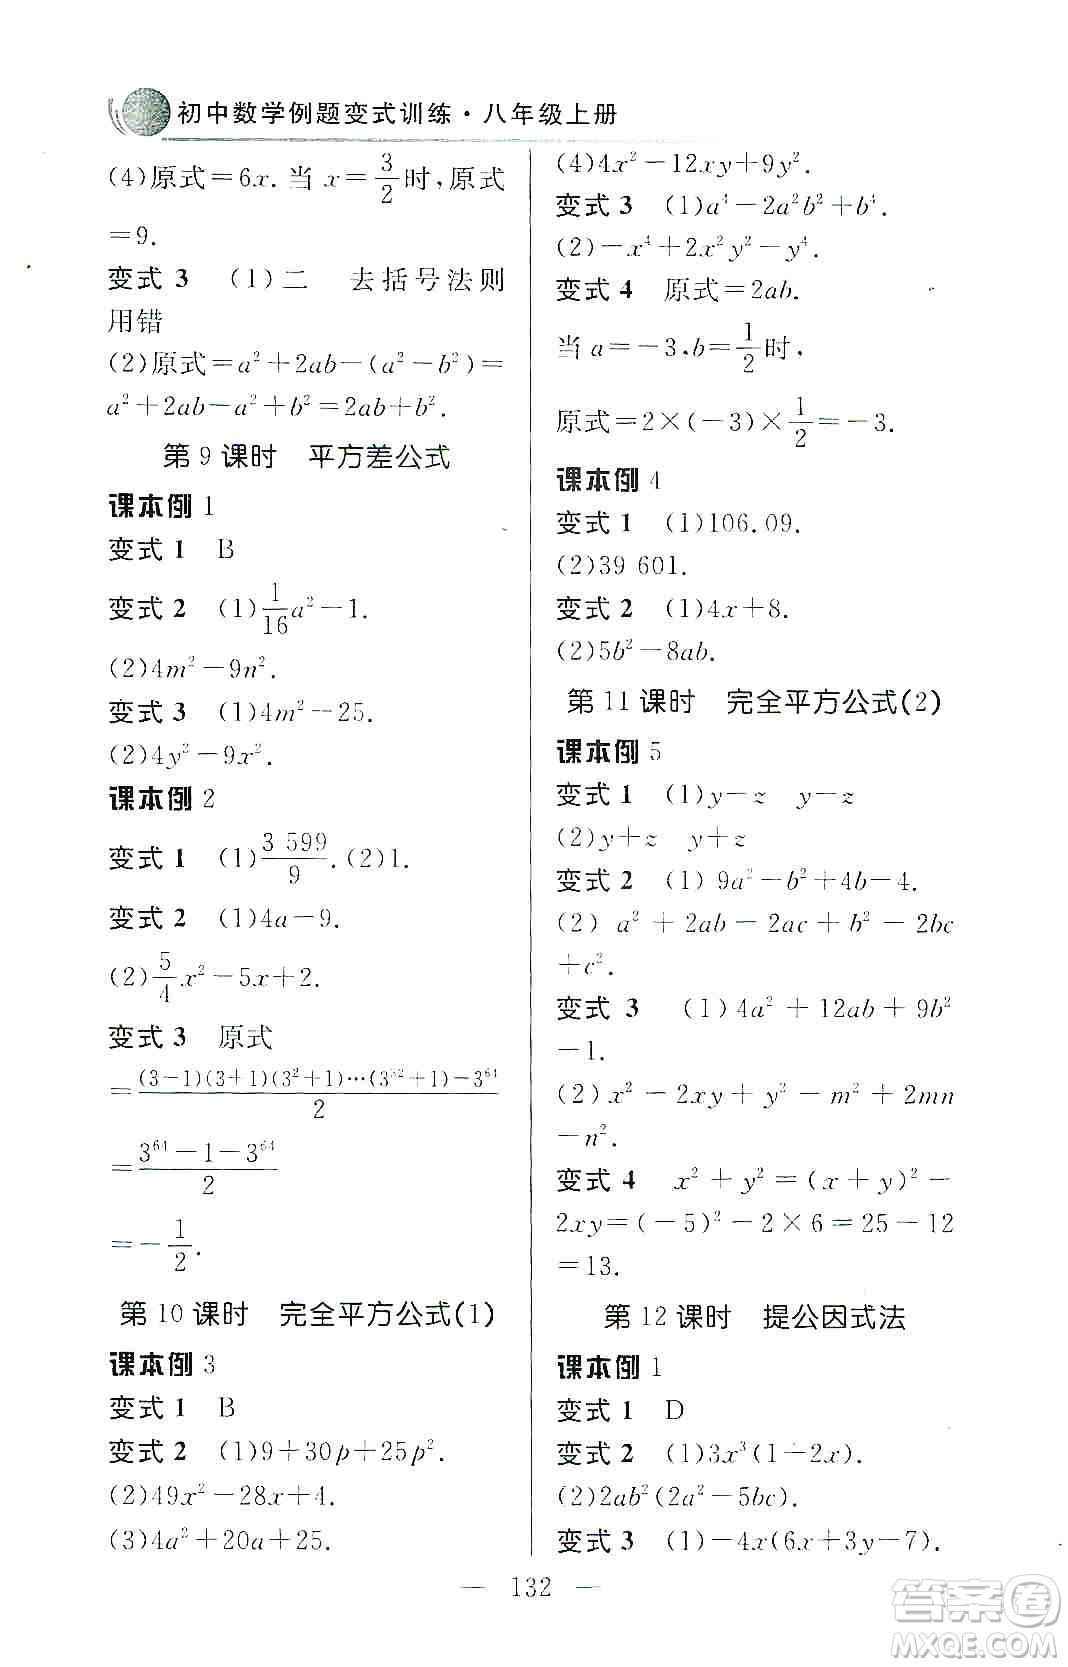 初中数学例题变式训练·八年级上册
(4)原式=6x. 当 x=3/2时,原式
=9.
变式 3 (1)二 去括号法则
用错
(2)原式=a²+2ab-(a²-b²)=
a²+2ab-a²+b²=2ab+b².
第 9 课时 平方差公式
课本例 1
变式 1 B
变式 2 (1)1/16a²-1.
(2)4m²-9n².
变式 3 (1)4m²-25.
(2)4y²-9x².
课本例 2
变式 1 (1)3 599/9. (2)1.
变式 2 (1)4a-9.
(2)5/4x²-5x+2.
变式 3 原式
=(3-1)(3+1)(3²+1)…(3³²+1)-3⁶⁴/2
=3⁶⁴-1-3⁶⁴/2
=-1/2.
第 10 课时 完全平方公式(1)
课本例 3
变式 1 B
变式 2 (1)9+30p+25p².
(2)49x²-28x+4.
(3)4a²+20a+25.
(4)4x²-12xy+9y².
变式 3 (1)a⁴-2a²b²+b⁴.
(2)-x⁴+2x²y²-y⁴.
变式 4 原式=2ab.
当 a=-3,b=1/2时,
原式=2×(-3)×1/2=-3.
课本例 4
变式 1 (1)106.09.
(2)39 601.
变式 2 (1)4x+8.
(2)5b²-8ab.
第 11 课时 完全平方公式(2)
课本例 5
变式 1 (1)y-z y-z
(2)y+z y+z
变式 2 (1) 9a²-b²+4b-4.
(2) a²+2ab-2ac+b²-2bc
+c².
变式 3 (1)4a²+12ab+9b²
-1.
(2)x²-2xy+y²-m²+2mn
-n².
变式 4 x²+y²=(x+y)²-
2xy=(-5)²-2×6=25-12
=13.
第 12 课时 提公因式法
课本例 1
变式 1 D
变式 2 (1)3x³(1-2x).
(2)2ab²(2a²-5bc).
变式 3 (1)-4x(6x+3y-7).
— 132 —
答案圈
MXQE.COM